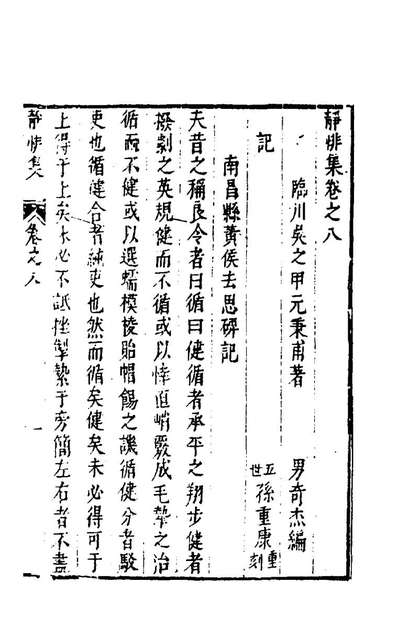 靜悱集卷之八
臨川矣之甲元秉甫著
男奇杰編
五世孫重康重刻
記
南昌縣黃侯去思碑記
夫昔之稱良令者曰循曰健循者承平之翔步健者
撥劇之英規健而不循或以悻直峭覈成毛摯之治
循而不健或以選蠕模棱貽帽餳之譏循健分者駁
吏也循健合者純吏也然而循矣健矣未必得可于
上得于上矣未必不詆挫掣縶于旁簡左右者不盡
靜悱集
卷之八
一